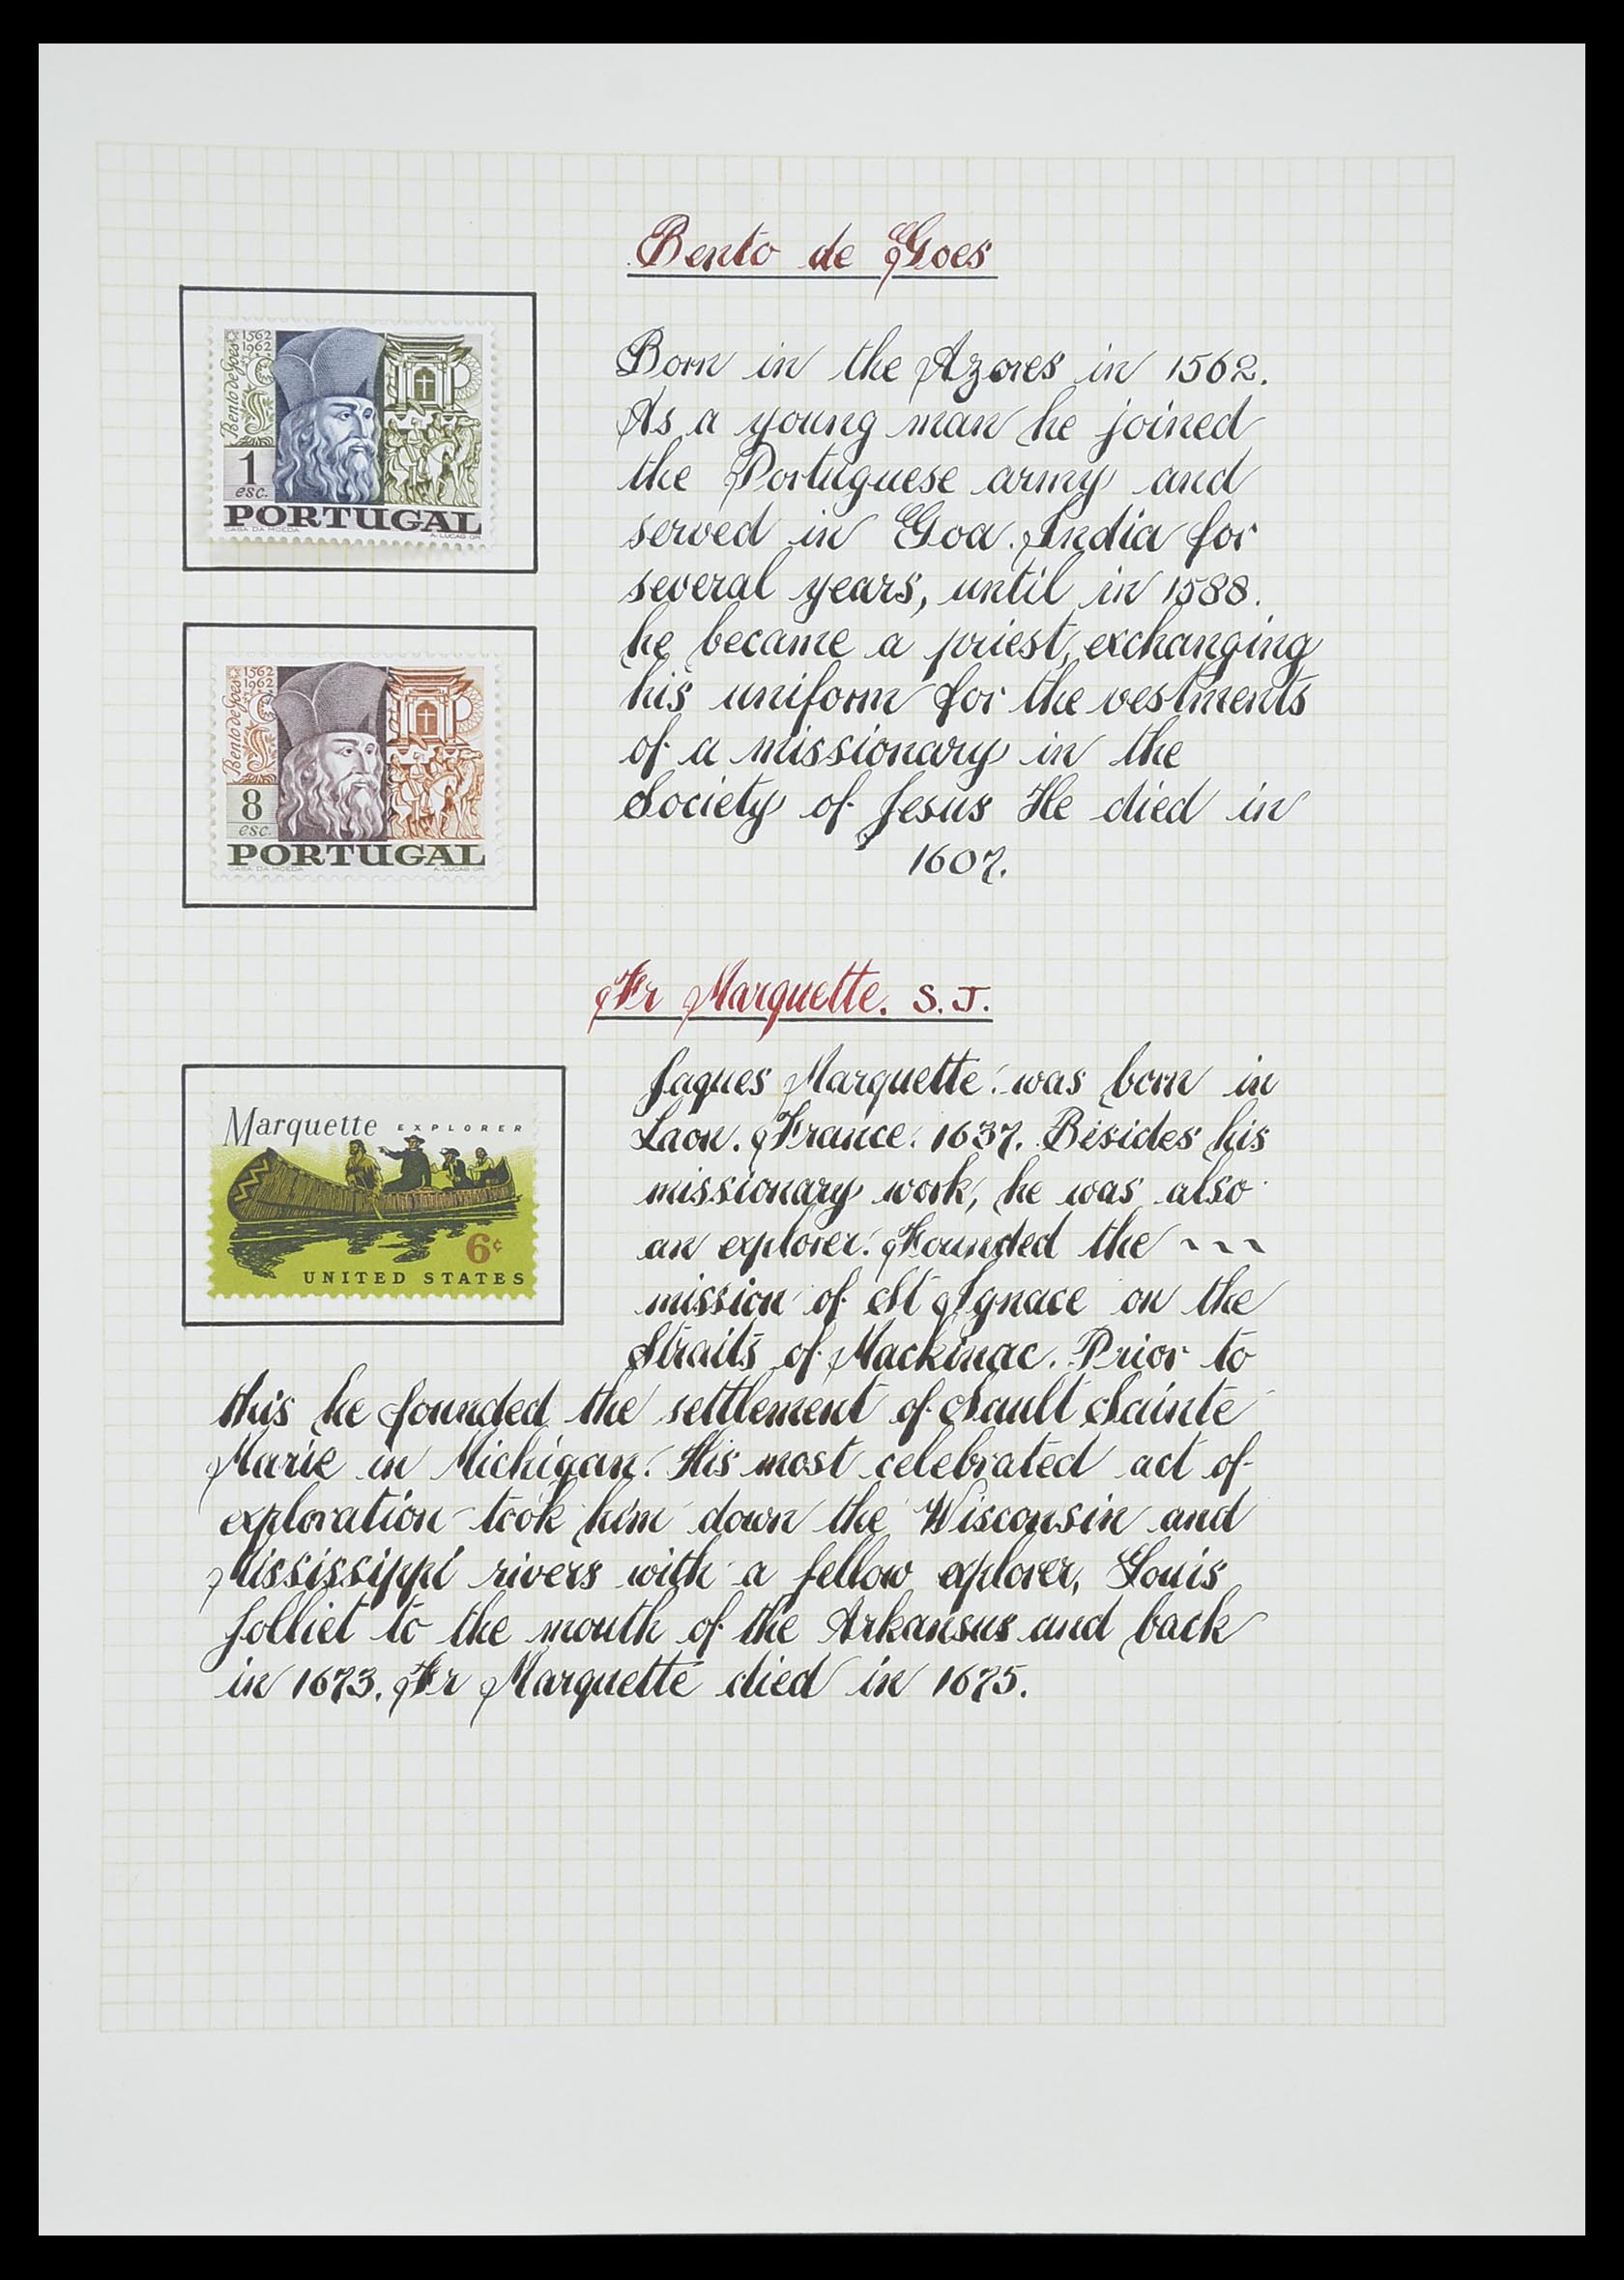 Bento de Goes
1562
1962
Bento de Goes
1
esc.
PORTUGAL
CASA DA MOEDA
A. LUCAS OR.
Born in the Azores in 1562.
As a young man he joined
the Portuguese army and
served in Goa. India for
several years, until in 1588.
he became a priest, exchanging
his uniform for the vestments
of a missionary in the
Society of Jesus He died in
1607.
1562
1962
Bento de Goes
8
esc.
PORTUGAL
CASA DA MOEDA
A. LUCAS OR.
Fr Marquette. S.J.
Marquette EXPLORER
6¢
UNITED STATES
Jaques Marquette. was born in
Laon. France. 1637. Besides his
missionary work, he was also
an explorer. Founded the ~ ~ ~
mission of St Ignace on the
Straits of Mackinac. Prior to
this he founded the settlement of Sault Sainte
Marie in Michigan. His most celebrated act of
exploration took him down the Wisconsin and
Mississippi rivers with a fellow explorer, Louis
Jolliet to the mouth of the Arkansus and back
in 1673. Fr Marquette died in 1675.